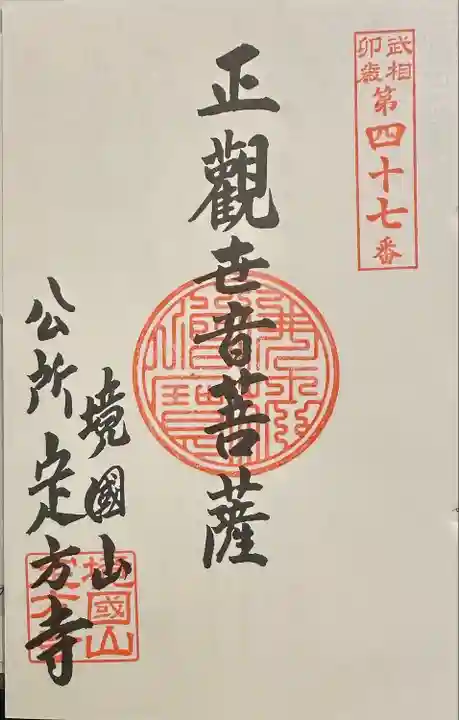 武相
卯歳
第四十七番
正觀世音菩薩
境國山
公所定方寺
境國山